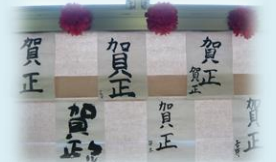 賀正
賀正
賀正
賀正
賀正
賀正
賀正